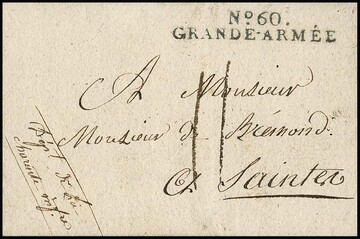 No. 60.
GRANDE-ARMÉE
A Monsieur
Monsieur de Brémond
A Saintes
Dépt. de la
Charente infre